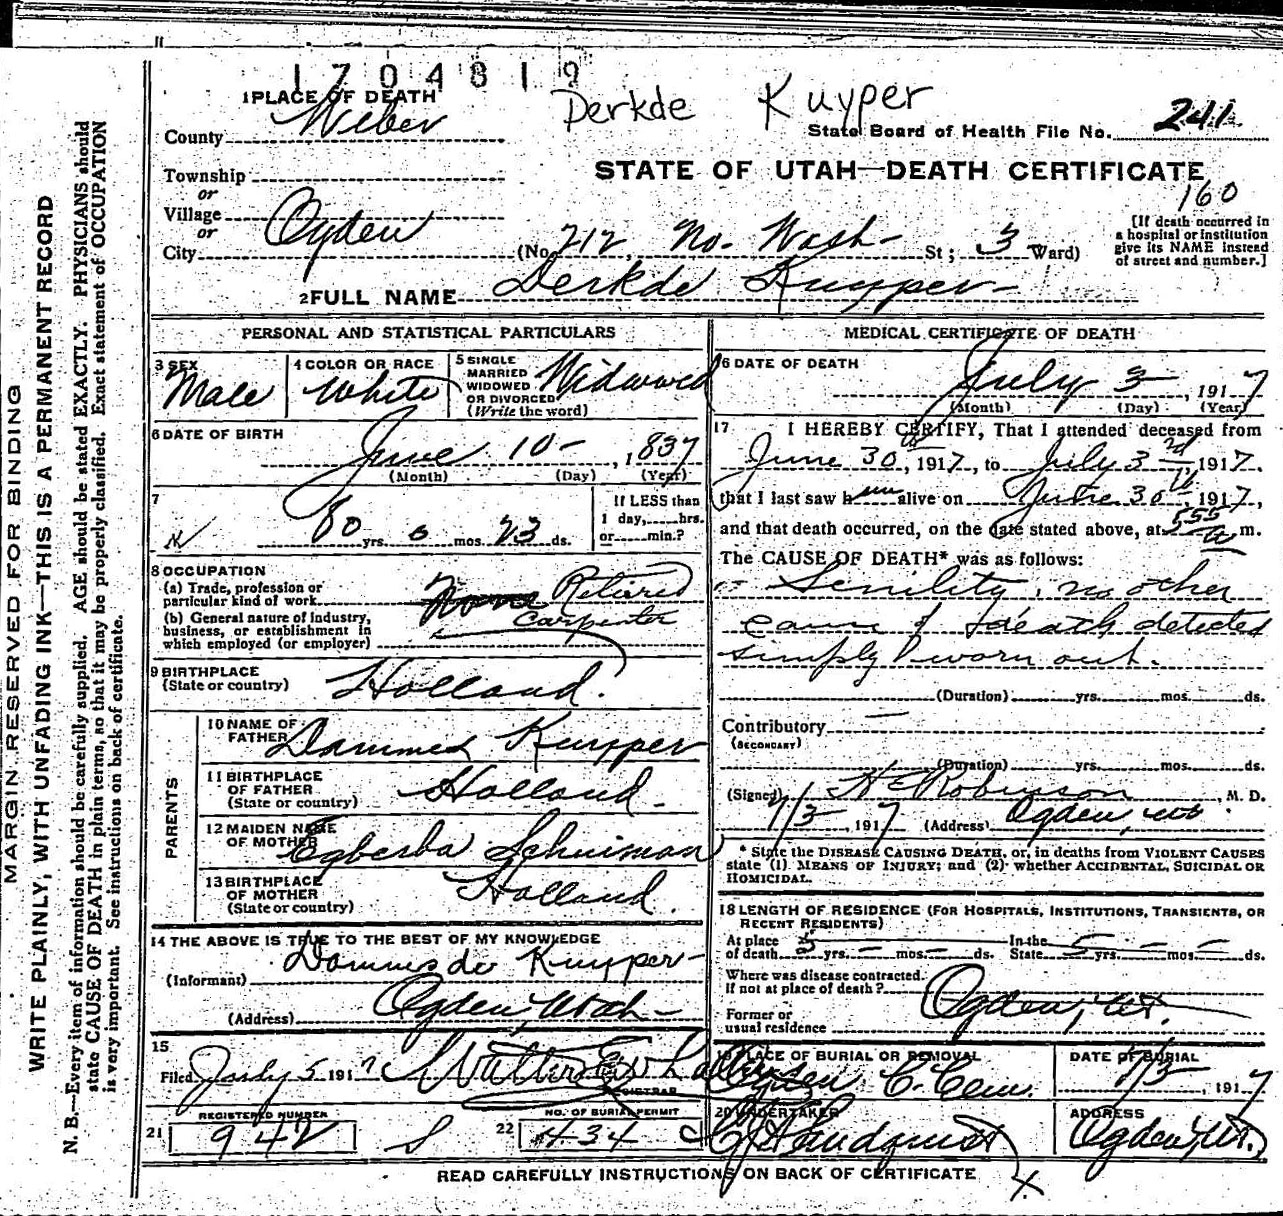 1704819
Derkde Kuyper
1 PLACE OF DEATH
County Weber
State Board of Health File No. 241
STATE OF UTAH—DEATH CERTIFICATE
160
Township
or
Village
or
City Ogden (No. 212, No. Wash- St; 3 Ward)
[If death occurred in
a hospital or institution
give its NAME instead
of street and number.]
2 FULL NAME Derkde Kuyper-
PERSONAL AND STATISTICAL PARTICULARS
3 SEX Male
4 COLOR OR RACE White
5 SINGLE
MARRIED
WIDOWED
OR DIVORCED
(Write the word)
Widward
6 DATE OF BIRTH
June 10-, 1837
(Month) (Day) (Year)
7
80 yrs. 0 mos. 23 ds.
If LESS than
1 day,......hrs.
or......min.?
8 OCCUPATION
(a) Trade, profession or
particular kind of work None Retired
(b) General nature of industry,
business, or establishment in
which employed (or employer)
Carpenter
9 BIRTHPLACE
(State or country) Holland.
PARENTS
10 NAME OF
FATHER Dammes Kuyper
11 BIRTHPLACE
OF FATHER
(State or country) Holland-
12 MAIDEN NAME
OF MOTHER Egberba Schuisman
13 BIRTHPLACE
OF MOTHER
(State or country) Holland.
14 THE ABOVE IS TRUE TO THE BEST OF MY KNOWLEDGE
(Informant) Dammis de Kuyper-
(Address) Ogden, Utah-
15
Filed July 5 1917
REGISTRAR
REGISTERED NUMBER
21 942
NO. OF BURIAL PERMIT
22 434
MEDICAL CERTIFICATE OF DEATH
16 DATE OF DEATH
July 3, 1917
(Month) (Day) (Year)
17 I HEREBY CERTIFY, That I attended deceased from
June 30th, 1917, to July 3rd, 1917,
that I last saw him alive on June 30th 1917,
and that death occurred, on the date stated above, at 555 a m.
The CAUSE OF DEATH* was as follows:
Senility, no other
cause of death detected
simply worn out.
(Duration) yrs. mos. ds.
Contributory —
(SECONDARY)
(Duration) yrs. mos. ds.
(Signed) H C Robinson, M. D.
7/3, 1917 (Address) Ogden, Ut.
* State the DISEASE CAUSING DEATH, or, in deaths from VIOLENT CAUSES
state (1) MEANS OF INJURY; and (2) whether ACCIDENTAL, SUICIDAL OR
HOMICIDAL.
18 LENGTH OF RESIDENCE (FOR HOSPITALS, INSTITUTIONS, TRANSIENTS, OR
RECENT RESIDENTS)
At place
of death 5 yrs. — mos. — ds.
In the
State 5 yrs. — mos. — ds.
Where was disease contracted.
If not at place of death?
Former or
usual residence
Ogden, Ut.
19 PLACE OF BURIAL OR REMOVAL
Ogden C. Cem.
DATE OF BURIAL
7/5, 1917
20 UNDERTAKER
ADDRESS
Ogden, Ut.
READ CAREFULLY INSTRUCTIONS ON BACK OF CERTIFICATE
MARGIN RESERVED FOR BINDING
WRITE PLAINLY, WITH UNFADING INK—THIS IS A PERMANENT RECORD
N. B.—Every item of information should be carefully supplied. AGE should be stated EXACTLY. PHYSICIANS should
state CAUSE OF DEATH in plain terms, so that it may be properly classified. Exact statement of OCCUPATION
is very important. See instructions on back of certificate.